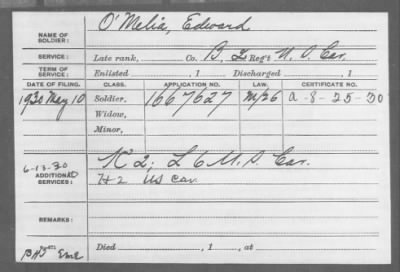 NAME OF SOLDIER: O'Melia, Edward
SERVICE: Late rank, Co. B, L Reg't U.S. Cav.
TERM OF SERVICE: Enlisted , 1 Discharged , 1
DATE OF FILING. CLASS. APPLICATION NO. LAW. CERTIFICATE NO.
1930 May 10 Soldier, 1667627 a-8-25-30
Widow,
Minor,
6-13-30
ADDITIONAL SERVICES: K 2; L 6 U.S. Cav.
H 2 US Cav
REMARKS:
Died , 1 , at